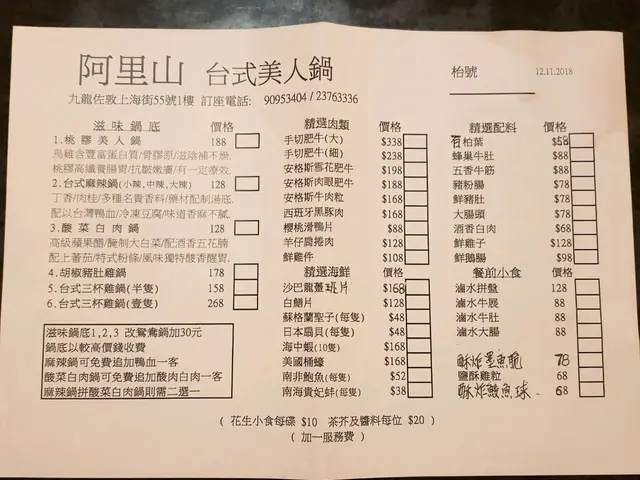 阿里山 台式美人鍋
枱號
12.11.2018
九龍佐敦上海街55號1樓 訂座電話: 90953404 / 23763336
滋味鍋底 價格
1.桃膠美人鍋 188
烏雞含豐富蛋白質/骨膠原/滋陰補不燥.
桃膠高纖養腸胃/抗皺嫩膚/有一定療效.
2.台式麻辣鍋(小辣,中辣,大辣) 128
丁香/肉桂/多種名貴香料/藥材配制湯底.
配以台灣鴨血/冷凍豆腐/味道香麻不膩.
3.酸菜白肉鍋 128
高級蘋果醋/醃制大白菜/配酒香五花腩
配上蕃茄/特式粉條/風味獨特酸香醒胃.
4.胡椒豬肚雞鍋 178
5.台式三杯雞鍋(半隻) 158
6.台式三杯雞鍋(壹隻) 268
滋味鍋底1,2,3 改鴛鴦鍋加30元
鍋底以較高價錢收費
麻辣鍋可免費追加鴨血一客
酸菜白肉鍋可免費追加酸肉白肉一客
麻辣鍋拼酸菜白肉鍋則需二選一
精選肉類 價格
手切肥牛(大) $338
手切肥牛(細) $238
安格斯雪花肥牛 $198
安格斯肉眼肥牛 $188
安格斯牛肉粒 $168
西班牙黑豚肉 $168
櫻桃滑鴨片 $88
羊仔筒捲肉 $128
鮮雞件 $108
精選海鮮 價格
沙巴龍躉班片 $168
白鱔片 $128
蘇格蘭聖子(每隻) $48
日本扇貝(每隻) $48
海中蝦(10隻) $168
美國桶蠔 $168
南非鮑魚(每隻) $52
南海貴妃蚌(每隻) $38
精選配料 價格
柏葉 $58
蜂巢牛肚 $88
五香牛筋 $88
豬粉腸 $78
鮮豬肚 $78
大腸頭 $78
酒香白肉 $68
鮮雞子 $128
鮮鵝腸 $98
餐前小食 價格
滷水拼盤 128
滷水牛展 88
滷水牛肚 88
滷水大腸 88
酥炸墨魚脆 78
鹽酥雞粒 68
酥炸鯪魚球.. 68
( 花生小食每碟 $10 茶芥及醬料每位 $20 )
( 加一服務費 )